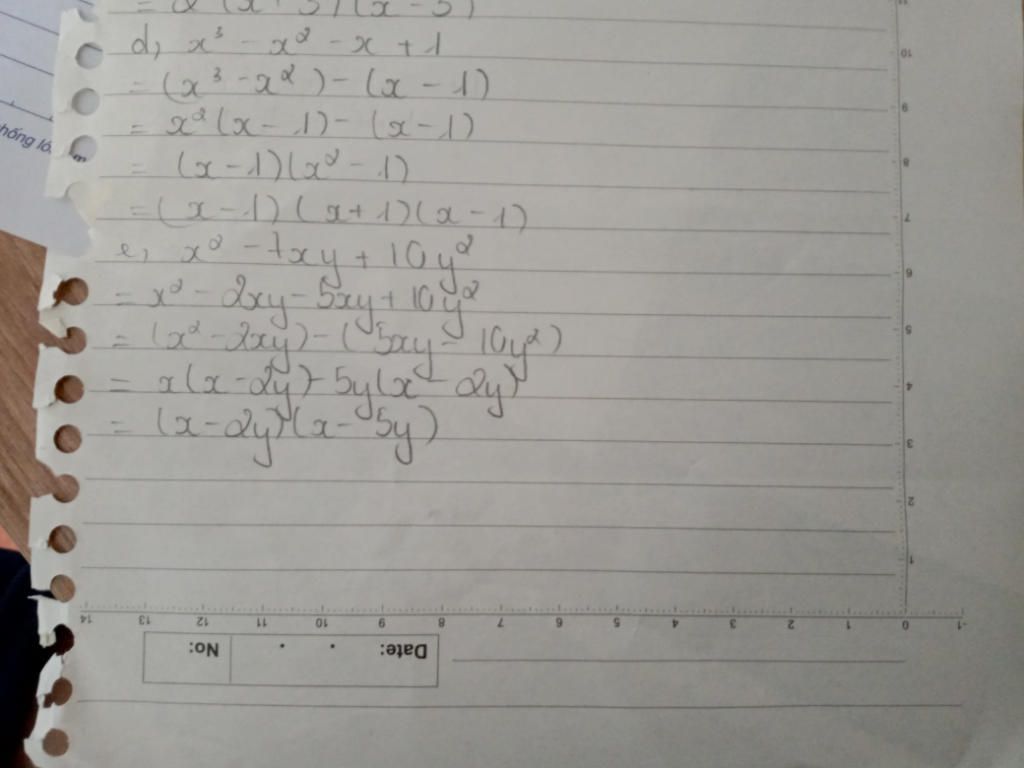 = 2 (x + 5) (x - 5)
d, x³ - x² - x + 1
= (x³ - x²) - (x - 1)
= x²(x - 1) - (x - 1)
= (x - 1)(x² - 1)
= (x - 1)(x + 1)(x - 1)
e, x² - 7xy + 10y²
= x² - 2xy - 5xy + 10y²
= (x² - 2xy) - (5xy - 10y²)
= x(x - 2y) - 5y(x - 2y)
= (x - 2y)(x - 5y)
11
10
9
8
7
6
5
4
3
2
1
14 13 12 11 10 9 8 7 6 5 4 3 2 1 0 -1
Date: . . No: